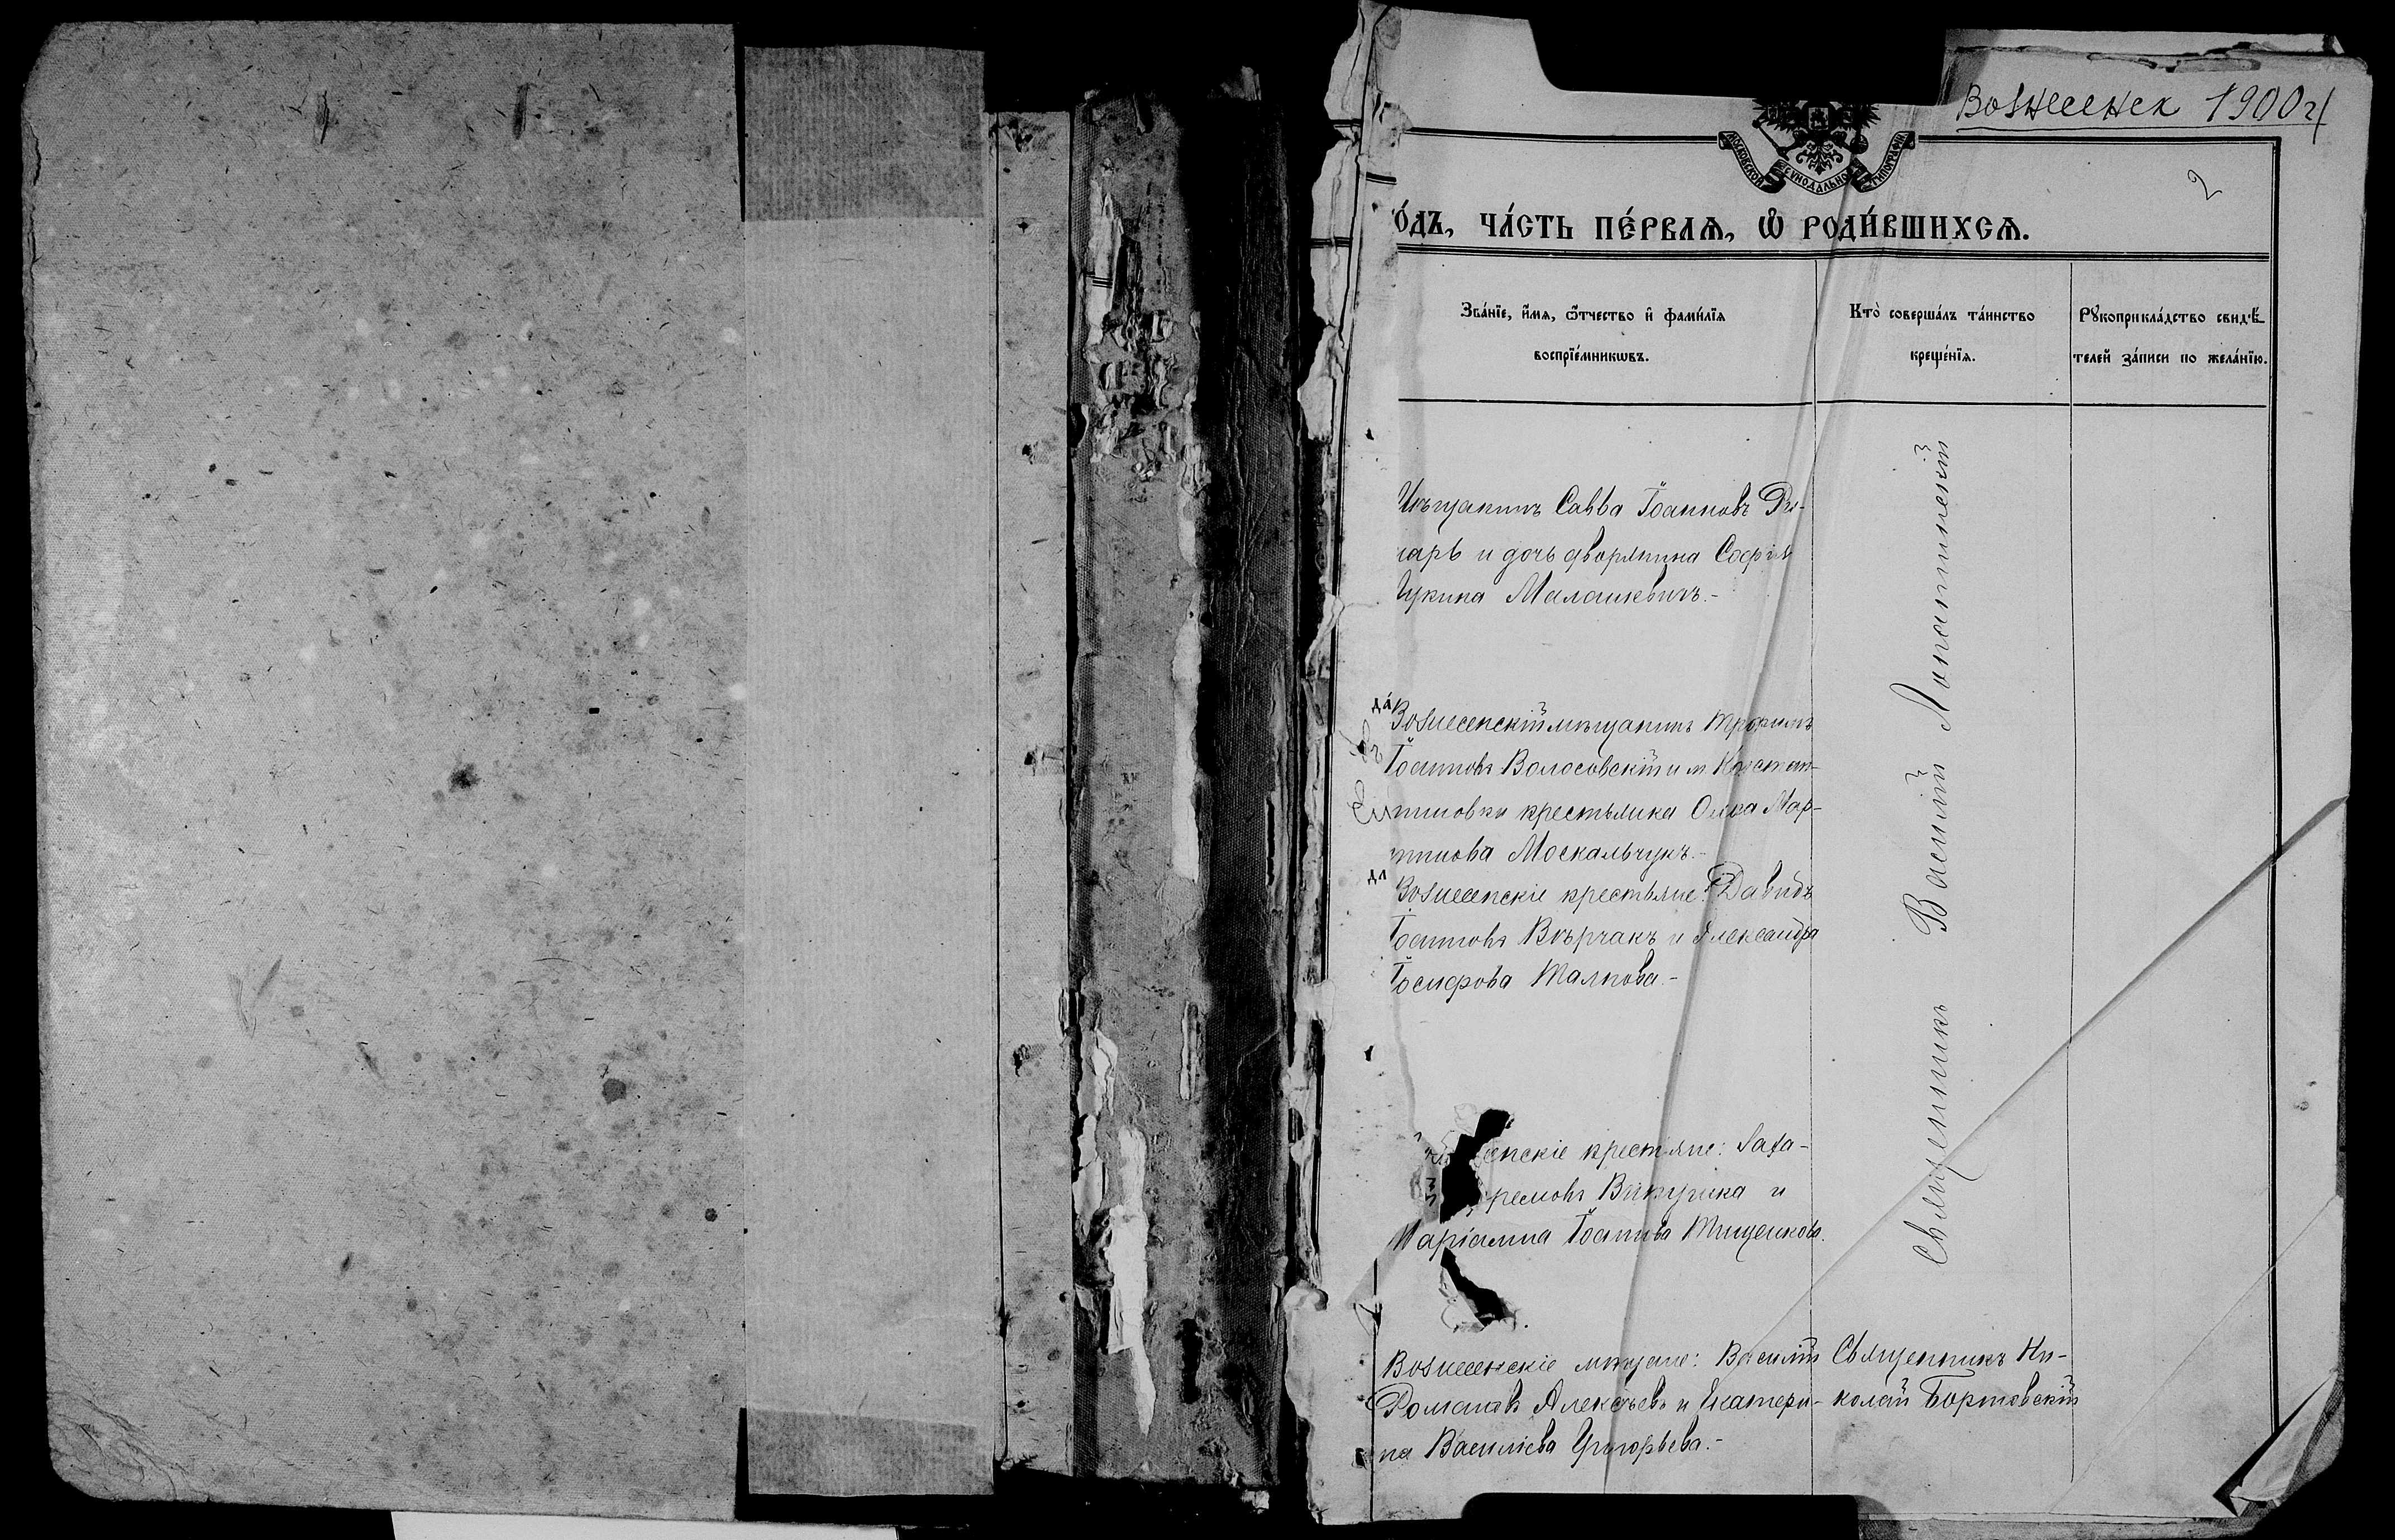 Вознесенск 1900 г
МОСКОВСКОЙ СѴНОДАЛЬНОЙ ТИПОГРАФІИ
2
О́ДЪ, ЧА́СТЬ ПЕ́РВАѦ, Ѡ҆ РОДИ́ВШИХСѦ.
Зва́нїе, и҆́мѧ, ѻ҆́тчество и҆ фами́лїѧ
воспрїе́мникѡвъ.
Кто̀ соверша́лъ та́инство
креще́нїѧ.
Рꙋкоприкла́дство свидѣ́-
телей за́писи по жела́нїю.
Мѣщанинъ Савва Іоанновъ Ры-
царь и дочь дворянина Софія
Лукина Малашкевичъ.-
да
Вознесенскій мѣщанинъ Трофимъ
Іоанновъ Волосовскій и м Констан-
тиновки крестьянка Ольга Мар-
тинова Москальчукъ.-
дл
Вознесенскіе крестьяне: Давидъ
Іоанновъ Вѣрчакъ и Александра
Іосифова Талпова.-
енскіе крестьяне: Заха-
ремовъ Викулика и
Маріанна Іоаннова Тищенкова.
Вознесенскіе мѣщане: Василій
Романовъ Алексѣевъ и Екатери-
на Василіева Григорьева.-
Священникъ Василій Лопатинскій
Священникъ Ни-
колай Бортовскій